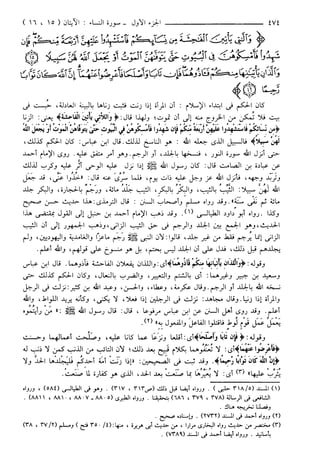 ٤٧٤ الجزء الأول ـ سورة النساء : الآيتان ( ١٥ ، ١٦ )
وَالَّٰتِي يَأْتِينَ الْفَاحِشَةَ مِن نِّسَائِكُمْ فَاسْتَشْهِدُوا عَلَيْهِنَّ أَرْبَعَةً مِّنكُمْ فَإِن شَهِدُوا فَأَمْسِكُوهُنَّ
فِي الْبُيُوتِ حَتَّىٰ يَتَوَفَّاهُنَّ الْمَوْتُ أَوْ يَجْعَلَ اللَّهُ لَهُنَّ سَبِيلًا
وَاللَّذَانِ يَأْتِيَانِهَا مِنكُمْ فَآذُوهُمَا فَإِن تَابَا وَأَصْلَحَا فَأَعْرِضُوا عَنْهُمَا إِنَّ اللَّهَ كَانَ تَوَّابًا
رَّحِيمًا
كان الحكم فى ابتداء الإسلام : أن المرأة إذا زنت فثبت زناها بالبينة العادلة، حُبست فى
بيت فلا تُمكن من الخروج منه إلى أن تموت؛ ولهذا قال: ﴿ واللاتي يأتين الفاحشة﴾ يعنى: الزنا
﴿ من نسائكم فاستشهدوا عليهن أربعة منكم فإن شهدوا فأمسكوهن في البيوت حتى يتوفاهن الموت أو يجعل الله
لهن سبيلا ﴾ فالسبيل الذى جعله الله : هو الناسخ لذلك. قال ابن عباس: كان الحكم كذلك،
حتى أنزل الله سورة النور ، فنسخها بالجلد، أو الرجم. وهو أمر متفق عليه. روى الإمام أحمد
عن عبادة بن الصامت قال: كان رسول الله ﷺ إذا نزل عليه الوحى أثر عليه وكرب لذلك
وتَربَّد وجهه، فأنزل الله عز وجل عليه ذات يوم، فلما سرّى عنه قال: « خذوا عنى، قد جعل
الله لهن سبيلا: الثيب بالثيب، والبكر بالبكر، الثيب جلد مائة، ورجم بالحجارة، والبكر جلد
مائة ثم نفى سنة». وقد رواه مسلم وأصحاب السنن : قال الترمذى: هذا حديث حسن صحيح
وكذا . رواه أبو داود الطيالسى (١). وقد ذهب الإمام أحمد بن حنبل إلى القول بمقتضى هذا
الحديث، وهو الجمع بين الجلد والرجم فى حق الثيب الزانى، وذهب الجمهور إلى أن الثيب
الزانى إنما يُرجم فقط من غير جلد، قالوا: لأن النبى ﷺ رجم ماعزًا والغامدية واليهوديين، ولم
يجلدهم قبل ذلك، فدل على أن الجلد ليس بحتم، بل هو منسوخ على قولهم، والله أعلم.
وقوله: ﴿واللذان يأتيانها منكم فآذوهما﴾ أى: واللذان يفعلان الفاحشة فآذوهما. قال ابن عباس
وسعيد بن جبير وغيرهما: أى بالشتم والتعيير، والضرب بالنعال، وكان الحكم كذلك حتى
نسخه الله بالجلد أو الرجم. وقال عكرمة، وعطاء، والحسن، وعبد الله بن كثير: نزلت فى الرجل
والمرأة إذا زنيا. وقال مجاهد: نزلت فى الرجلين إذا فعلا، لا يكنى، وكأنه يريد اللواط، والله
أعلم. وقد روى أهل السنن عن ابن عباس مرفوعا ، قال: قال رسول الله ﷺ: « من رأيتموه
يعمل عمل قوم لوط فاقتلوا الفاعل والمفعول به»(٢).
وقوله: ﴿ فإن تابا وأصلحا ﴾ أى: أقلعا ونزعا عما كانا عليه، وصلحت أعمالهما وحسنت
﴿فأعرضوا عنهما﴾ أى: لا تُعنّفوهما بكلام قبيح بعد ذلك؛ لأن التائب من الذنب كمن لا ذنب له
﴿إن الله كان توابا رحيما﴾. وقد ثبت فى الصحيحين: « إذا زنت أمة أحدكم فليجلدها الحد ولا
يثرب عليها» (٣) أى: لا يعيرها بما صنعت بعد الحد، الذى هو كفارة لما صنعت.
(١) المسند (٣١٨/٥ حلبى) . ورواه أيضا قبل ذلك (ص٣١٣ ، ٣١٧) . وهو فى الطيالسى (٥٨٤) . ورواه
الشافعى فى الرسالة (٣٧٨ ، ٣٧٩ ، ٦٨٦) بتحقيقنا . ورواه الطبرى (٨٨٠٥ ـ ٨٨٠٧ ، ٨٨١٠ ، ٨٨١١) .
وفصلنا تخريجه هناك .
(٢) ورواه أحمد فى المسند (٢٧٣٢) . وإسناده صحيح .
(٣) مختصر من حديث رواه البخارى مرارا ، من حديث أبى هريرة ، منها: (٣٥٠/٤ فتح) ومسلم (٣٧/٢ ، ٣٨)
بأسانيد . ورواه أيضا أحمد فى المسند (٧٣٨٩) .